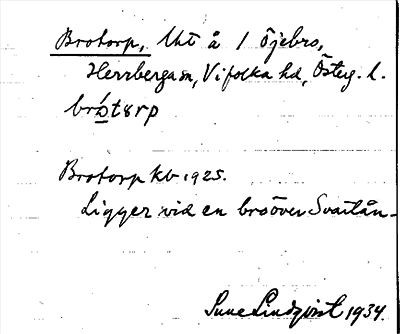 Brotorp, Uht å 1 Öjebro,
Herrberga sn, Vifolka hd, Österg. l.
brótɵrp
Brotorp kb 1925.
Ligger vid en bro över Svartån.
Sune Lindqvist 1934.